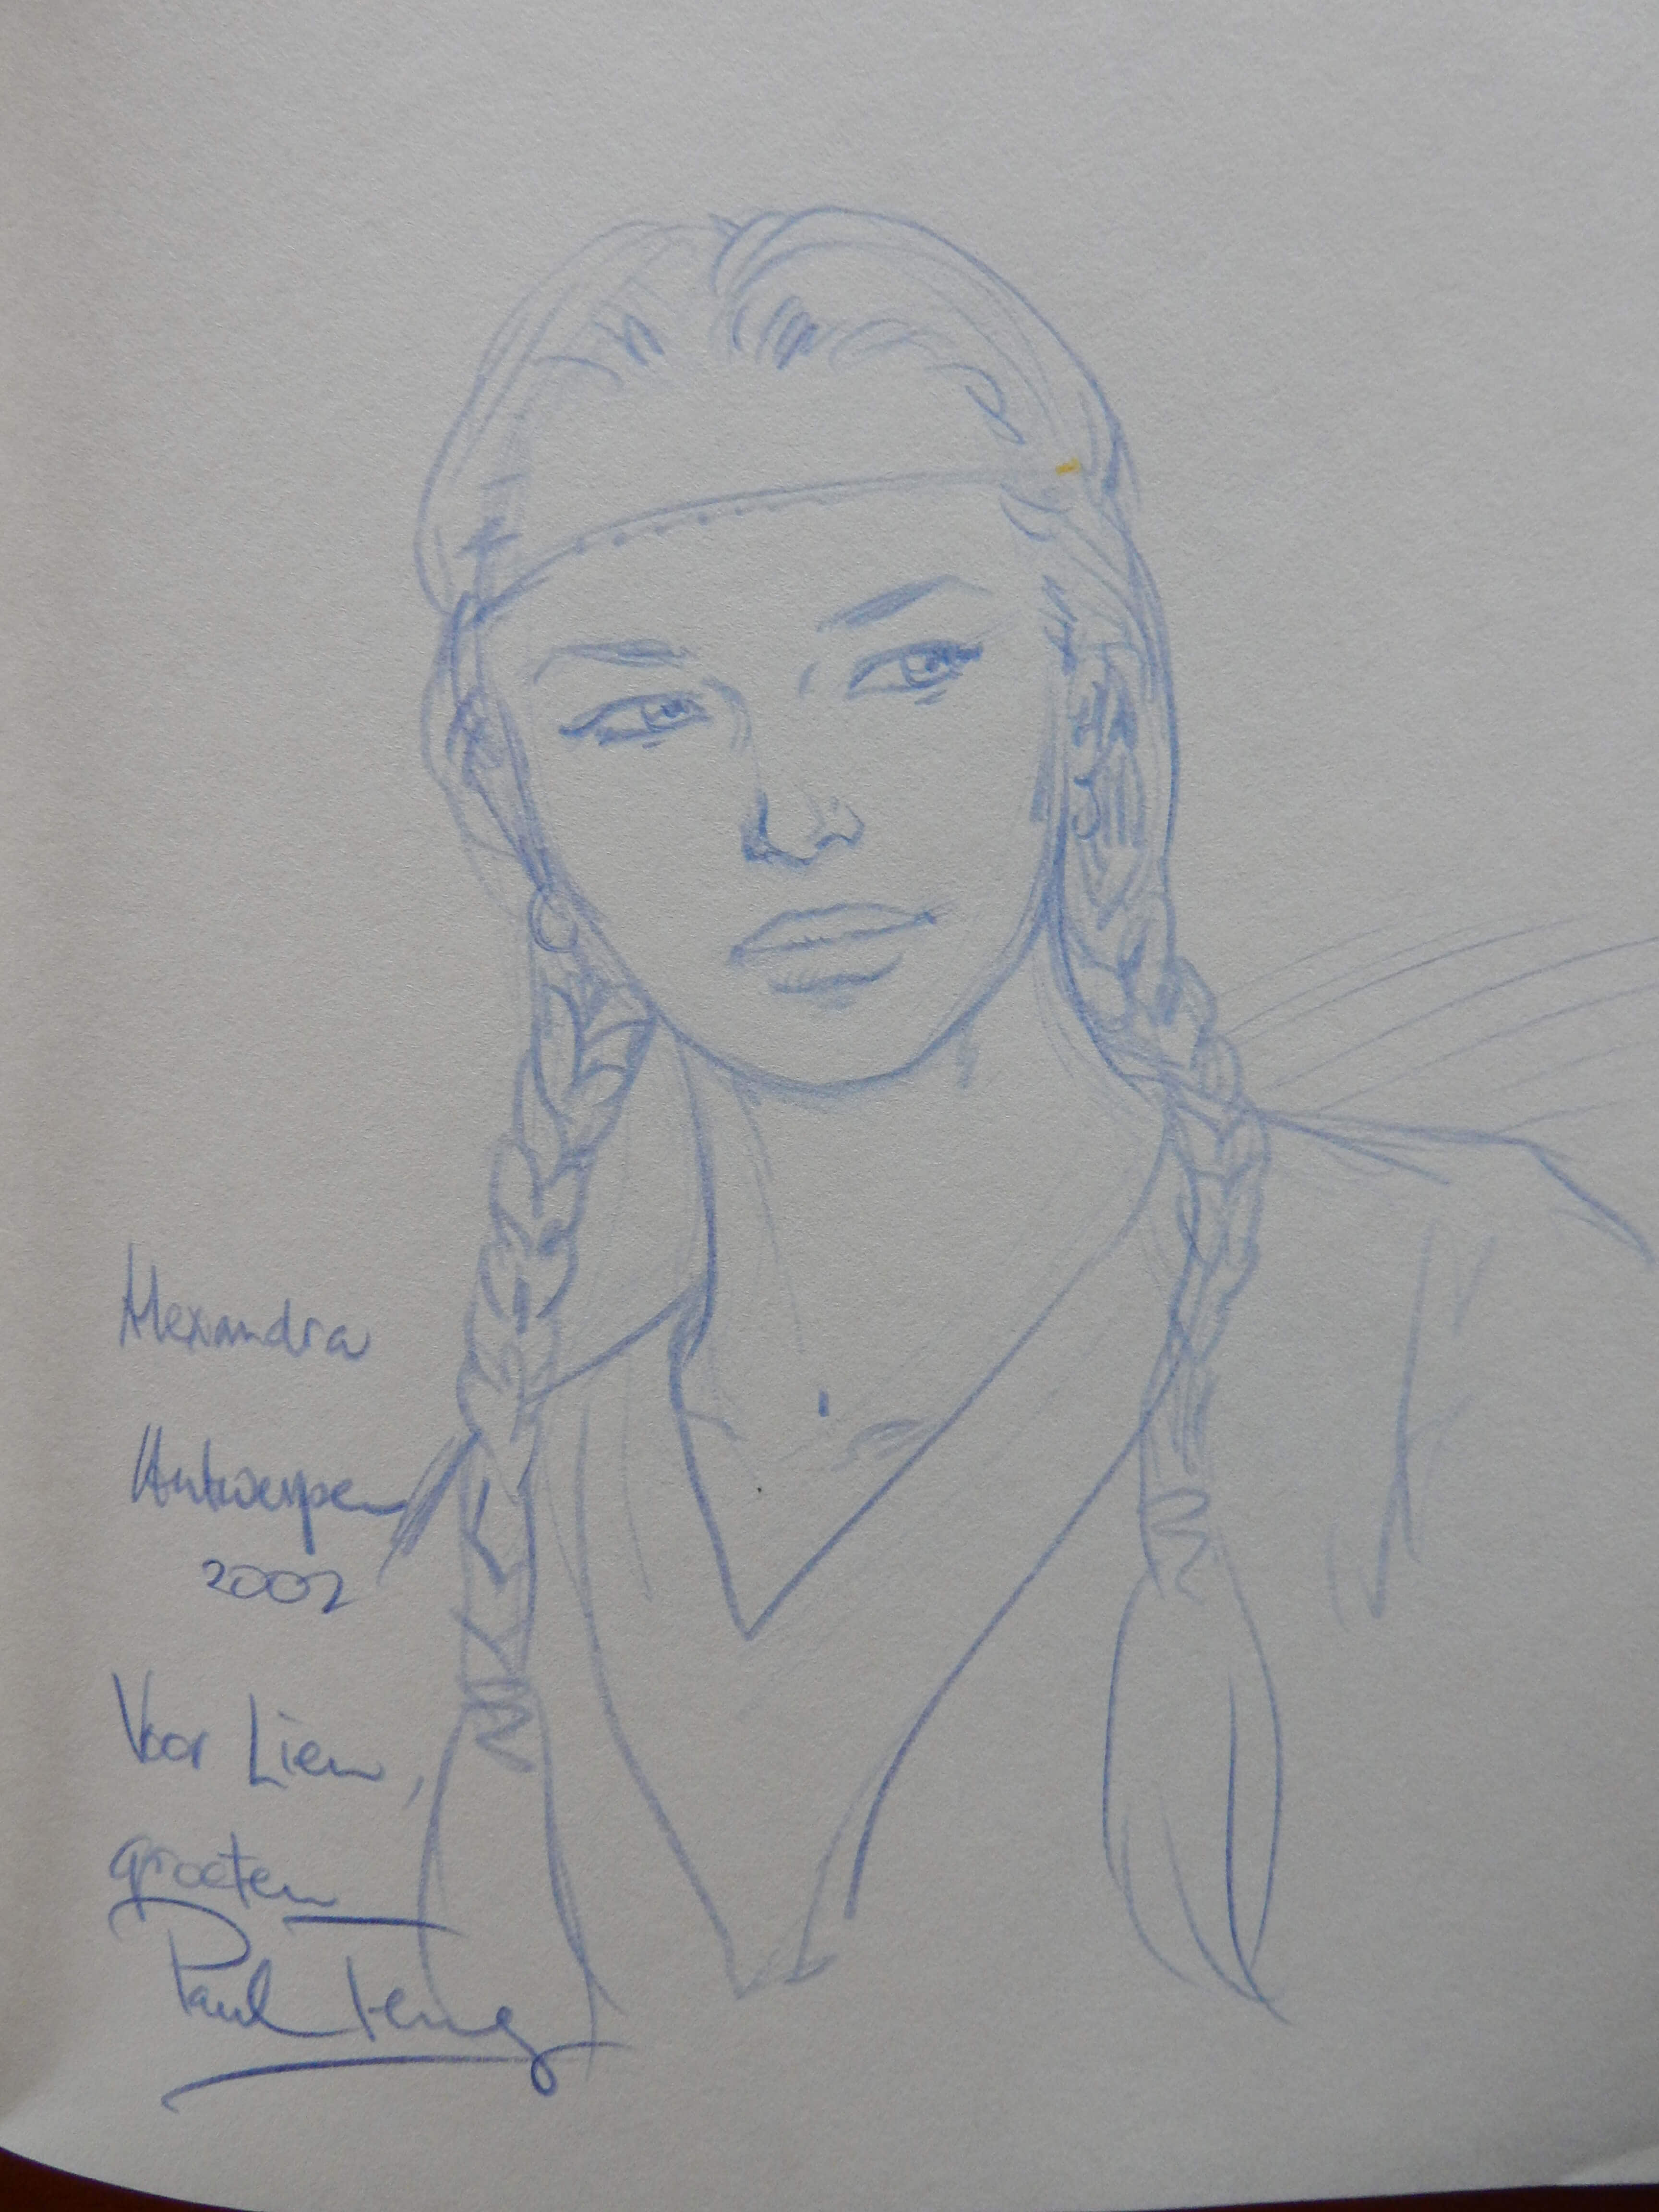 Alexandra
Antwerpen
2002
Voor Lien,
groeten
Paul Teng